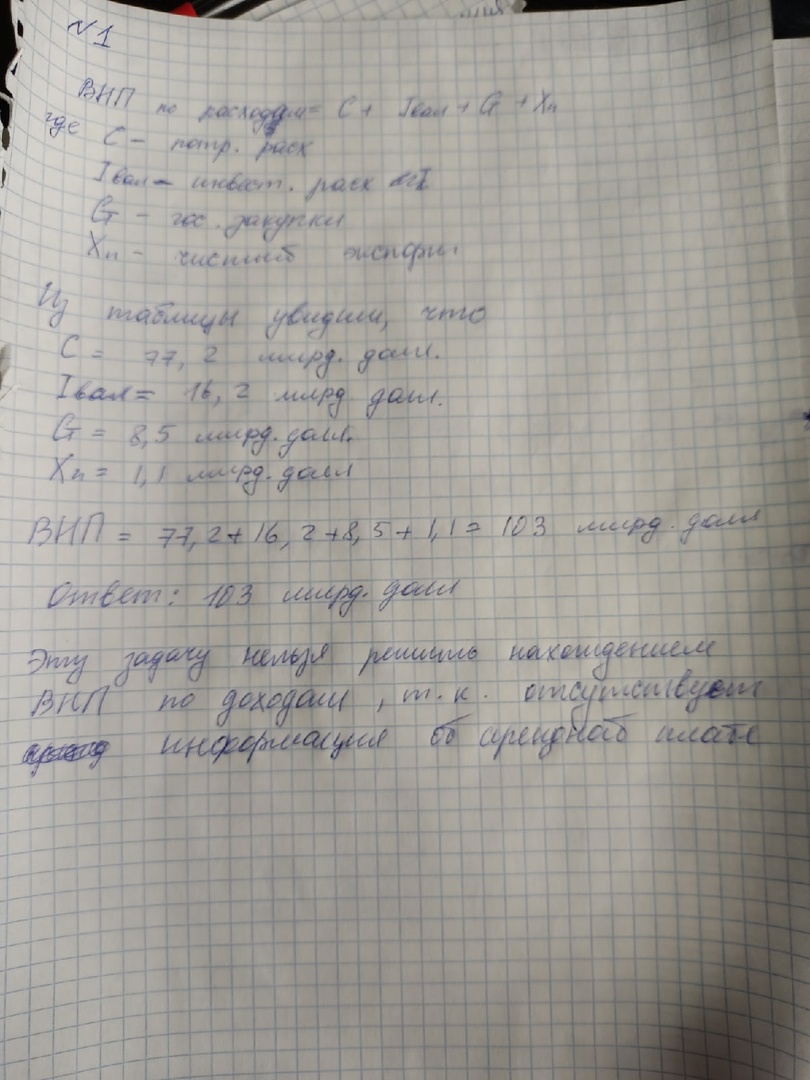 №1
ВНП по расходам = C + Iвал + G + Xn
где C - потр. расх
Iвал - инвест. расх
G - гос. закупки
Xn - чистый экспорт
Из таблицы увидим, что
C = 77,2 млрд. долл.
Iвал = 16,2 млрд долл.
G = 8,5 млрд. долл.
Xn = 1,1 млрд. долл
ВНП = 77,2+16,2+8,5+1,1= 103 млрд. долл
Ответ: 103 млрд. долл
Эту задачу нельзя решить нахождением
ВНП по доходам, т.к. отсутствует
информация об арендной плате